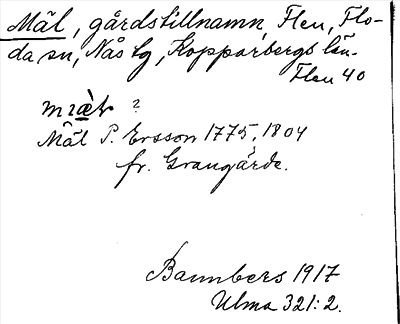 Mäl, gårdstillnamn, Flen, Flo-
da sn, Nås tg, Kopparbergs län.
Flen 40
?
Mäl P. Ersson 1775, 1804
fr. Grangärde.
1917
Ulma 321:2.